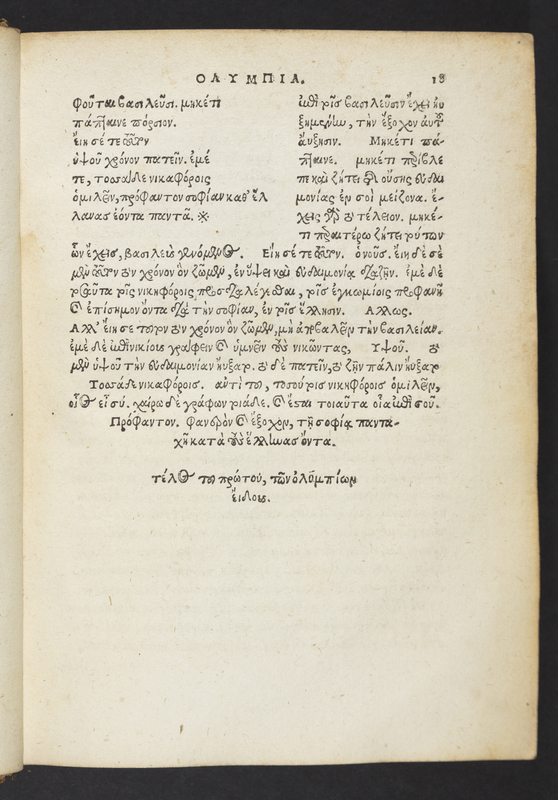 ΟΛΥΜΠΙΑ. 19
φοῦται βασιλεῦσι. μηκέτι
πάπταινε πόρσιον.
εἴη σέ τε τοῦτον
ὑψοῦ χρόνον πατεῖν. ἐμέ
τε, τοσσάδε νικαφόροις
ὁμιλεῖν, πρόφαντον σοφίαν καθ' ἕλ
λανας ἐόντα παντᾶ. ※
ἐπὶ τοῖς βασιλεῦσιν ἔχει ηὐ
ξημένην, τὴν ἔξοχον αὐτῶν
αὔξησιν. Μηκέτι πά-
πταινε. μηκέτι πρόβλε
πε καὶ ζήτει οὔσης εὐδαι
μονίας ἐν σοὶ μείζονα. ἔ-
χεις γὰρ τὸ τέλειον. μηκέ-
τι περαιτέρω ζήτει τούτων
ὧν ἔχεις, βασιλεὺς γενόμενος. Εἴη σέ τε τοῦτον. ὁ νοῦς. εἴη δὲ σὲ
μὲν τοῦτον τὸν χρόνον ὃν ζῶμεν, ἐν ὕψει καὶ εὐδαιμονίᾳ ἐμὲ δὲ
τοῖς νικηφόροις τοῖς ἐγκωμίοις προφανῆ
καὶ ἐπίσημον ὄντα διὰ τὴν σοφίαν, ἐν τοῖς ἕλλησιν. Αλλως.
Αλλ' εἴη σε τὸν χρόνον ὃν ζῶμεν, μὴ ἀποβαλεῖν τὴν βασιλείαν.
ἐμὲ δὲ ἐπινικίους γράφειν καὶ ὑμνεῖν τοὺς νικῶντας, Υψοῦ. τὸ
μὲν ὑψοῦ τὴν εὐδαιμονίαν ηὔξησε. τὸ δὲ πατεῖν, τὸ ζῆν πάλιν ηὔξησε
Τοσσάδε νικαφόροις. αὐτὶ τοῦ, τοσούτοις νικηφόροις ὁμιλεῖν,
οἷος εἶ σύ. χαίρω δὲ γράφων τοιάδε. καὶ ἔσται τοιαῦτα οἷα ἐπὶ σοῦ.
Πρόφαντον. φανερὸν καὶ ἔξοχον, τῇ σοφίᾳ παντα-
χῆ κατὰ τοὺς ἕλληνας ὄντα.
τέλος τοῦ πρώτου, τῶν ὀλυμπίων
εἴδους.